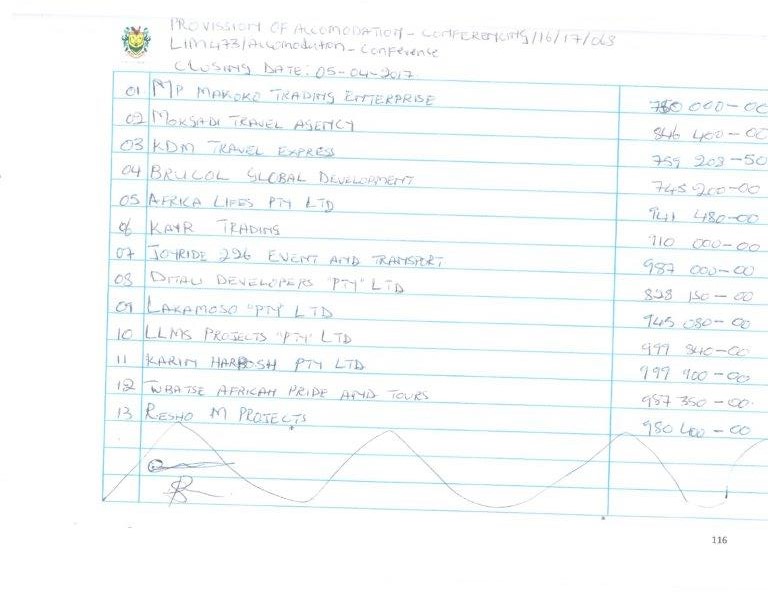 PROVISSION OF ACCOMODATION - CONFERENCING/16/17/063
LIM473/Accomodation - Conference
CLOSING DATE: 05-04-2017
01 MP MAKOKO TRADING ENTERPRISE 780 000-00
02 MOKSADI TRAVEL AGENCY 846 400-00
03 KDM TRAVEL EXPRESS 759 203-50
04 BRUCOL GLOBAL DEVELOPMENT 745 200-00
05 AFRICA LIFES PTY LTD 941 480-00
06 KAYR TRADING 910 000-00
07 JOYRIDE 296 EVENT AND TRANSPORT 987 000-00
08 DITAU DEVELOPERS "PTY" LTD 828 150-00
09 LAKAMOSO "PTY" LTD 945 080-00
10 LLMS PROJECTS "PTY" LTD 999 840-00
11 KARIM HARBOSH PTY LTD 999 900-00
12 TUBATSE AFRICAN PRIDE AND TOURS 987 350-00
13 RESHO M PROJECTS 980 400-00
116